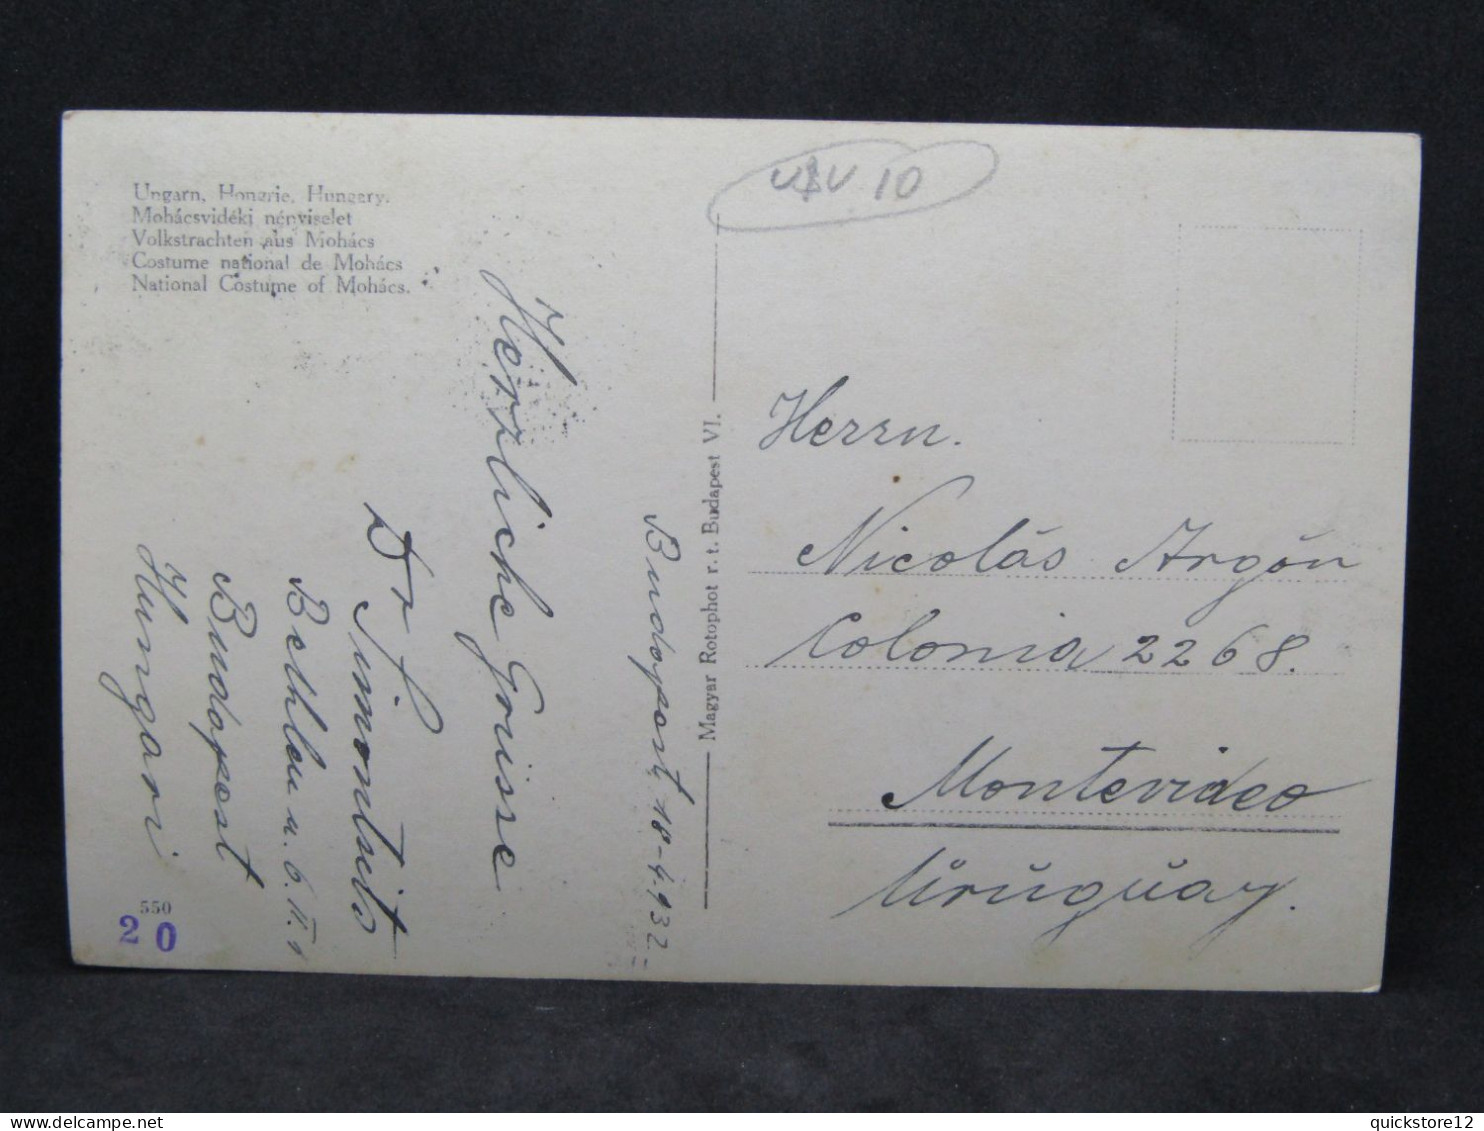 Ungarn, Hongrie, Hungary.
Mohácsvidéki népviselet
Volkstrachten aus Mohács
Costume national de Mohács
National Costume of Mohács.
Herzliche Grüsse
Dr
Budapest
Hungari
Budapest 18-4.932
Magyar Rotophot r. t. Budapest VI.
550
20
10
Herrn.
Nicolás Argón
Colonia 2268.
Montevideo
Uruguay.
© delcampe.net
quickstore12